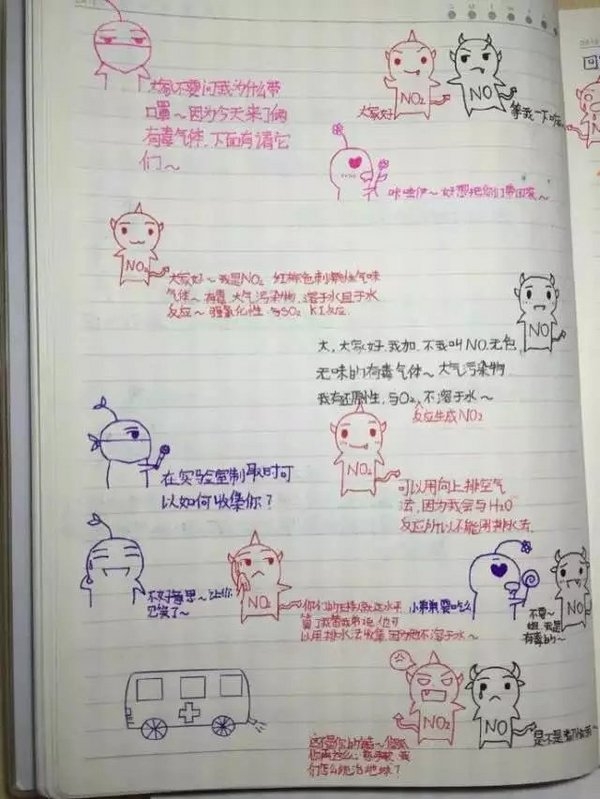 大家不要问我为什么带
口罩～因为今天来了俩
有毒气体.下面有请它
们～
NO₂
NO
大家好
等我一下啦
咔哇伊～好想把你们带回家～
NO₂
大家好～我是NO₂ 红棕色刺激性气味
气体～有毒 大气污染物.溶于水且于水
反应～强氧化性 与SO₂ KI反应
NO
大,大家好.我加.不我叫NO.无色
无味的有毒气体～大气污染物
我有还原性,与O₂,不溶于水～
反应生成NO₂
在实验室制取时可
以如何收集你？
NO₂
可以用向上排空气
法,因为我会与H₂O
反应所以不能用排水法
不好意思～让你
见笑了～
NO₂
你们的主持人就这水平
算了我替我弟说,他可
以用排水法收集,因为他不溶于水～
小弟弟要吃么
NO
不要～
我是
有毒的～
NO₂
NO
是不是
这不是你的错～
你怎么
们怎么统治地球？